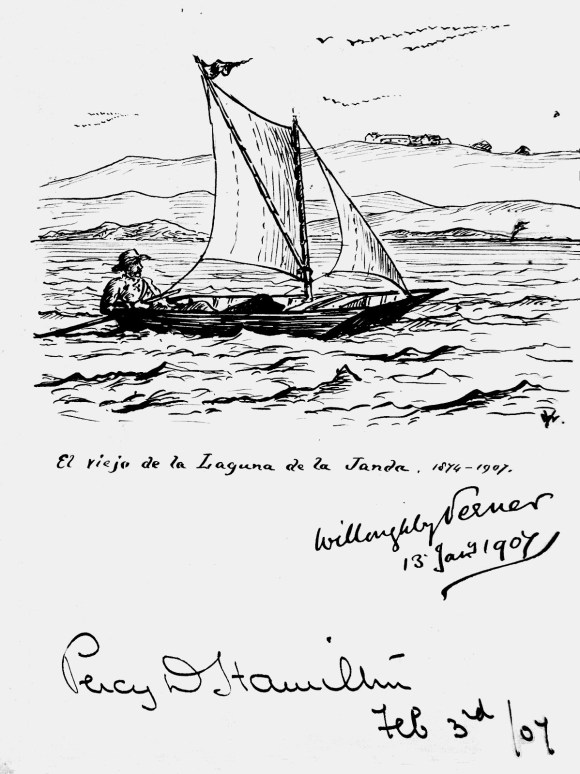 El viejo de la Laguna de la Janda. 1874-1907.
Willoughby Verner
13 Jany 1907
Percy D Hamilton
Feb 3rd /07